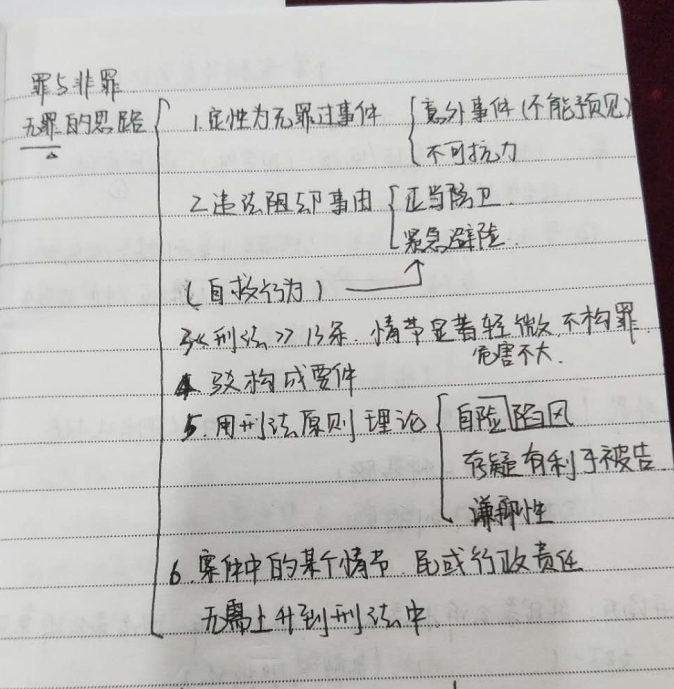 罪与非罪
无罪的思路
1.定性为无罪过事件
意外事件(不能预见)
不可抗力
2.违法阻却事由
正当防卫.
紧急避险.
(自救行为)
3.《刑法》13条.情节显著轻微,不构罪
危害不大.
4.驳构成要件
5.用刑法原则理论
自险陷风
存疑有利于被告.
谦抑性
6.案件中的某个情节.民或行政责任
无需上升到刑法中.